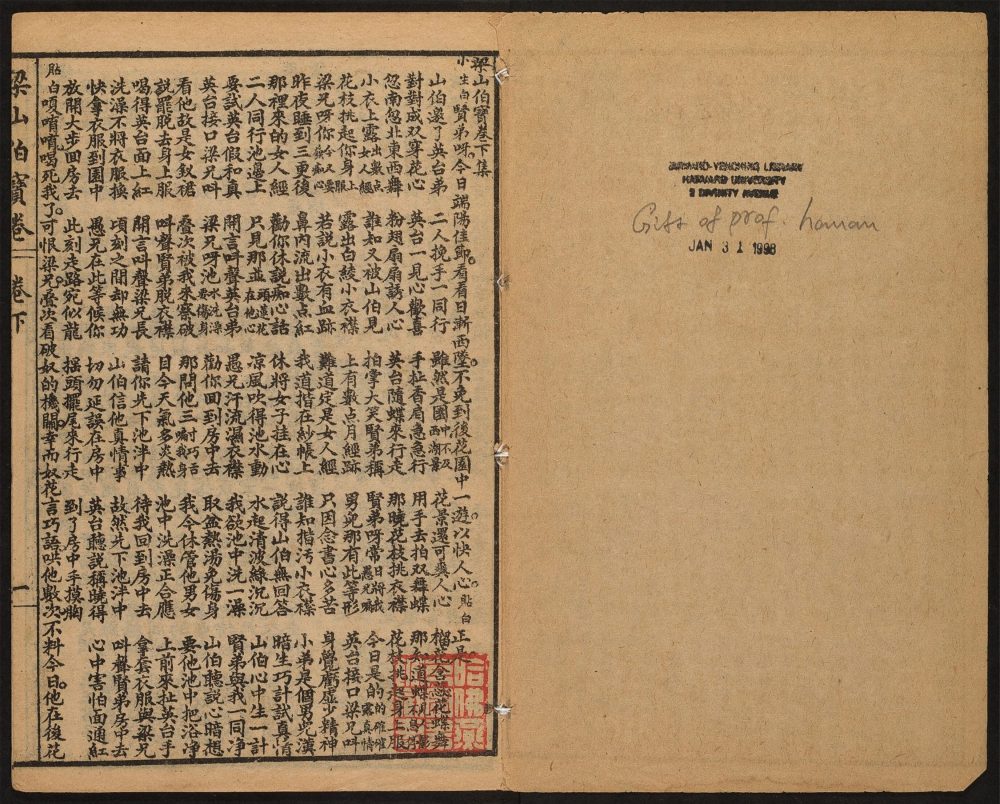 梁山伯寶卷下集
小生白 賢弟呀今日端陽佳節看看日漸西墜。不免到後花園中一遊。以快人心。貼白 正是。
山伯邀了英台弟 二人挽手一同行 雖然是園中不及西湖景 花景還可爽人心 榴花含花蝶舞
對對成双穿花心 英台一見心歡喜 手扯香扇急急行 用手去拍双舞蝶 那知道蝶
忽南忽北東西舞 粉翅扇扇誘人心 英台隨蝶來行走 那曉花枝挑衣襟 花枝挑起身上服
小衣上露出數点女人經 誰知又被山伯見 拍掌大笑賢弟稱 賢弟呀當日將愚兄瞞 今日是的的確確露真情
花枝挑起你身上服 露出白綾小衣襟 上有數点月經跡 男兒那有此等形 英台接口梁兄呌
梁兄呀你今人要痴心 若說小衣有血跡 難道定是女人經 只因念書心多苦 身覺虧虛少精神
昨夜睡到三更後 鼻內流出數点紅 我道揩在紗帳上 誰知揩污小衣襟 小弟是個男兒漢
那裡來的女人經 勸你休說痴心話 休將女子挂在心 說得山伯無回答 暗生巧計試真情
二人同行池邊上 只見那並頭蓮花在他心 凉風吹得池水動 水起清波綠沉沉 山伯心中生一計
要試英台假和真 開言呌聲英台弟 愚兄汗流濕衣襟 我欲池中洗一澡 賢弟與我一同净
英台接口梁兄呌 梁兄呀池水洗澡要傷身 勸你回到房中去 取盆熱湯免傷身 山伯聽說心暗想
看他故是女釵裙 叠次被我來察破 那間他三巧舌我身 我今休管他男女 要他池中把浴净
說罷脫去身上服 呌聲賢弟脫衣襟 目今天氣多炎熱 池中洗澡正合應 上前來扯英台手
喝得英台面上紅 開言呌聲梁兄長 請你先下池泮中 待我回到房中去 拿套衣服與梁兄
洗澡不將衣服換 頃刻之間却無功 山伯信他真情事 故然先下池泮中 呌聲賢弟房中去
快拿衣服到園中 愚兄在此等候你 切勿延誤在房中 英台聽說稱曉得 心中害怕面通紅
放開大步回房去 此刻走路宛似龍 摇頭擺尾來行走 到了房中手摸胸
貼白 嗄唷唷喝死我了。可恨梁兄叠次看破奴的機關。幸而奴花言巧語哄他數次。不料今日他在後花
梁山伯寶卷 卷下 一
HARVARD-YENCHING LIBRARY
HARVARD UNIVERSITY
2 DIVINITY AVENUE
Gift of prof. hanan
JAN 31 1998